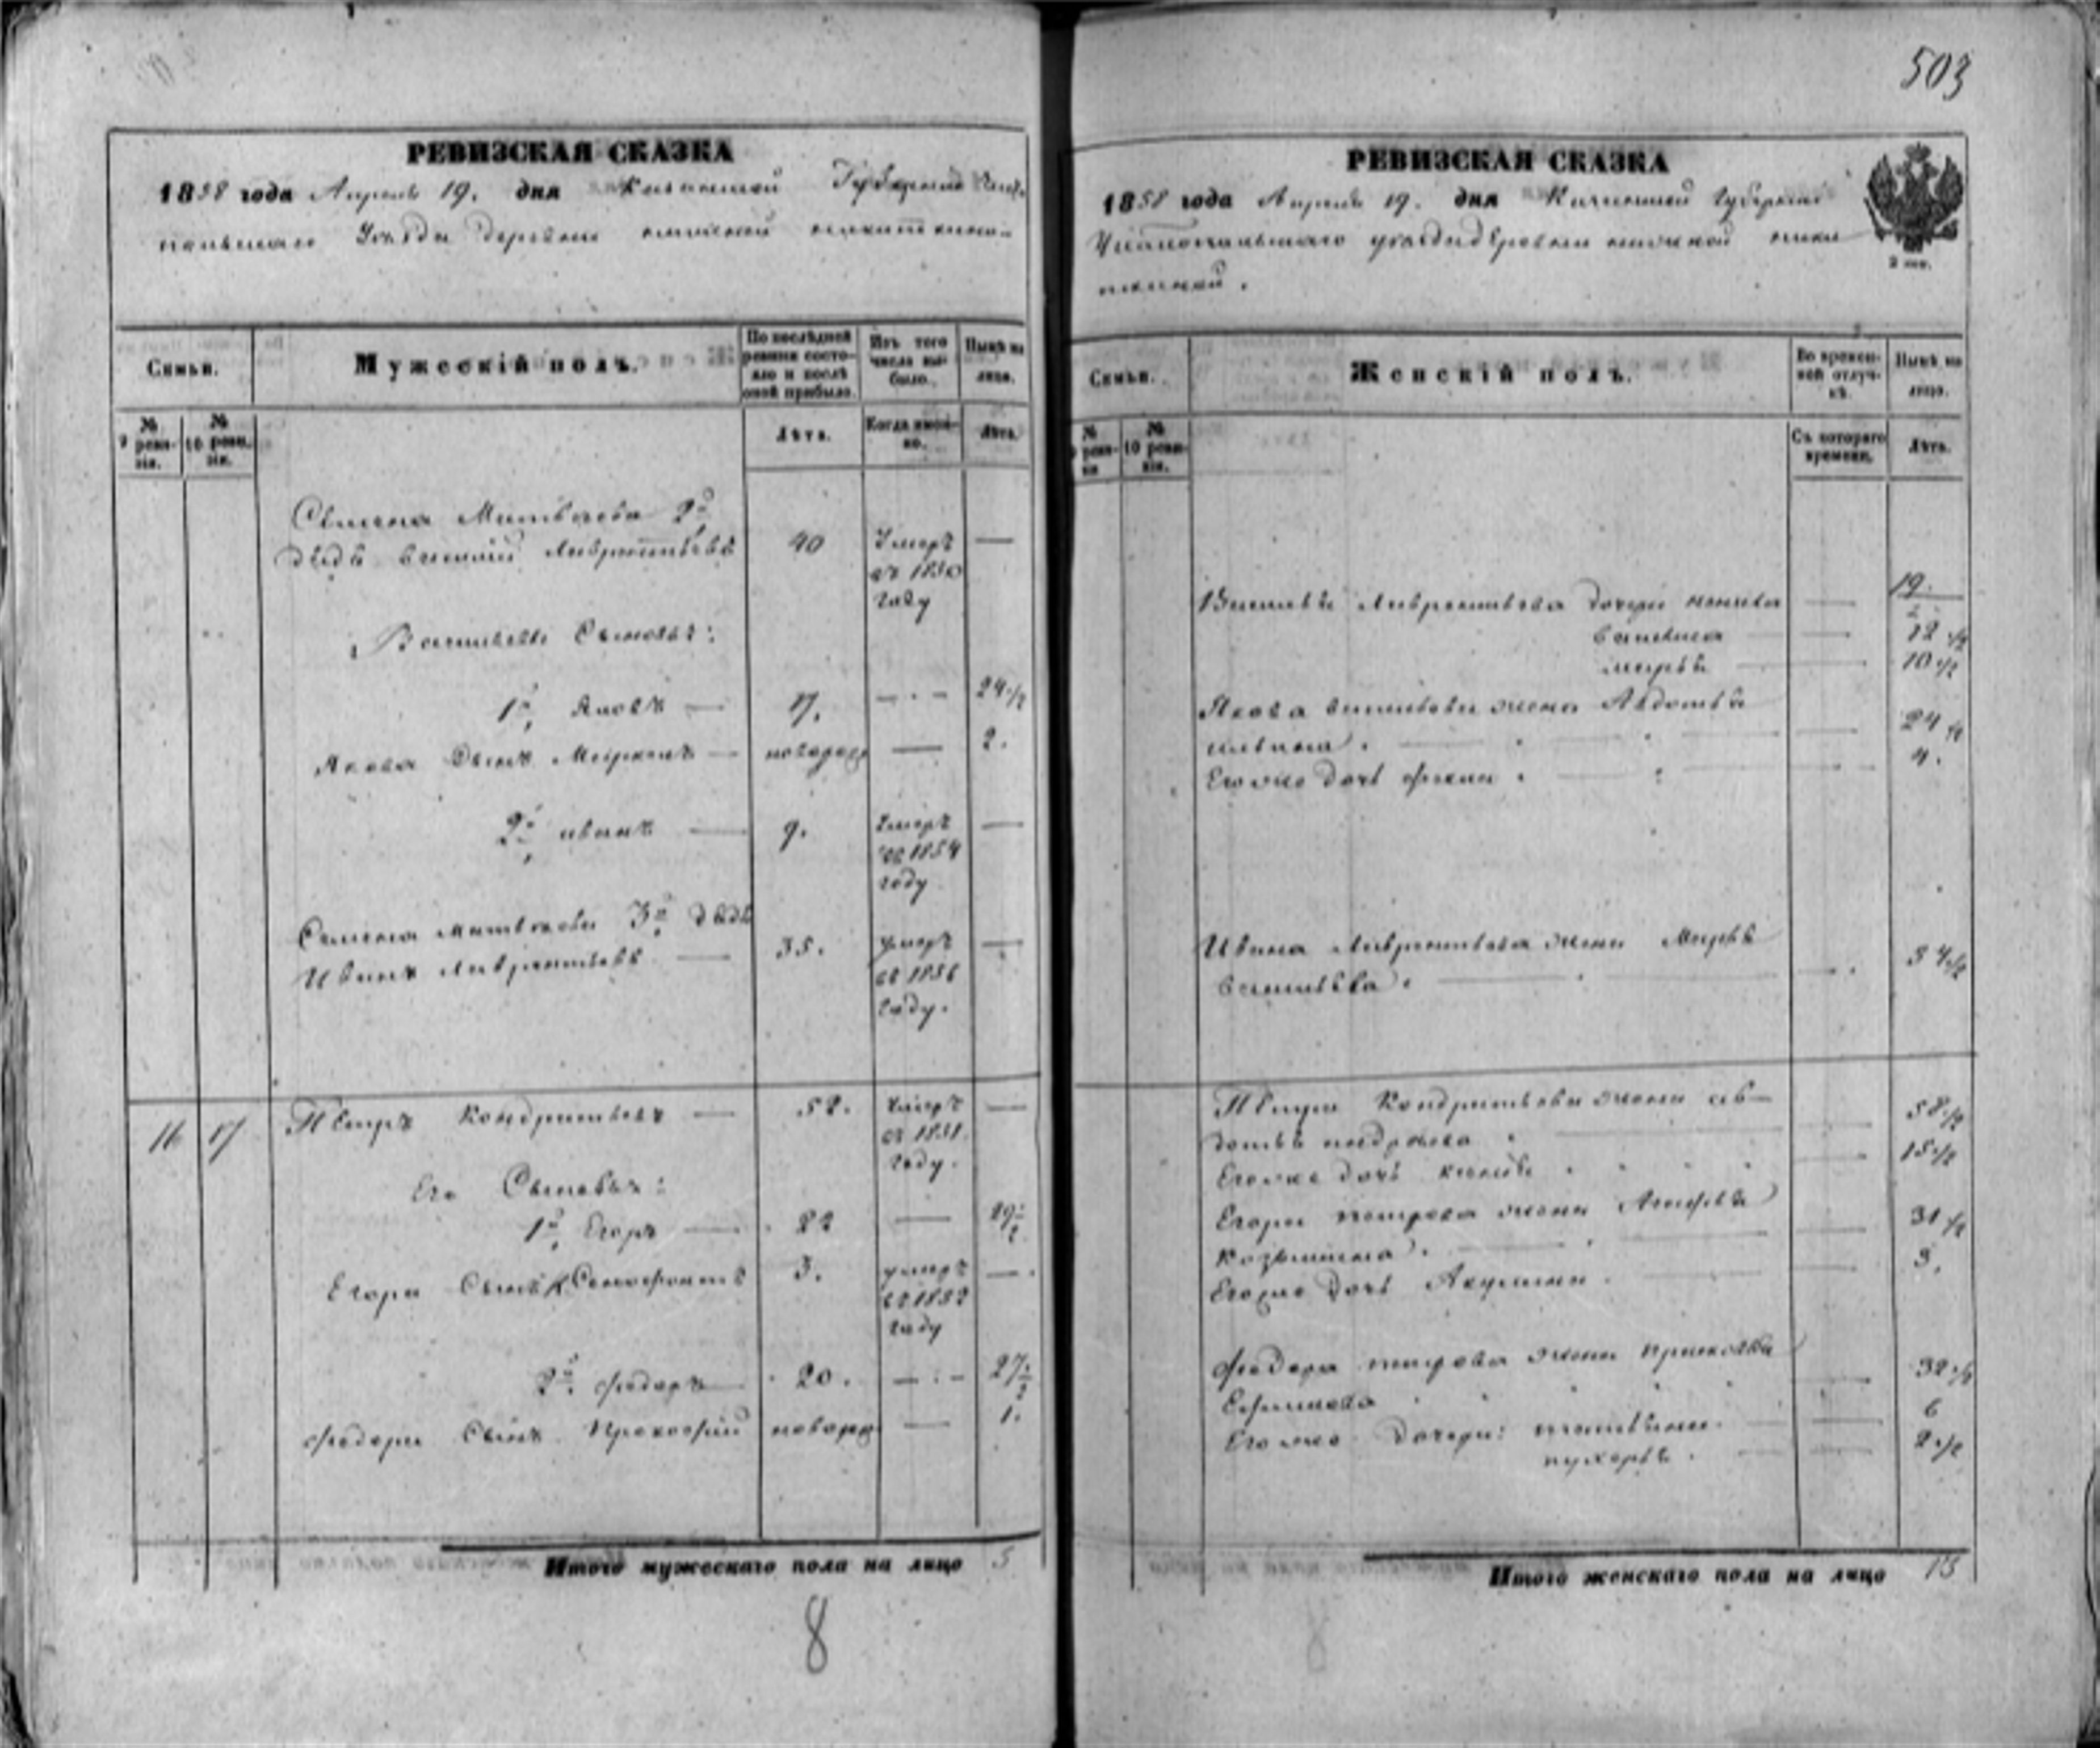 503
РЕВИЗСКАЯ СКАЗКА
1858 года Апреля 19. дня Казанской Губернии Чисто
польскаго Уезда деревни
Семьи.
Мужескій полъ.
По послѣдней ревизіи состояло и послѣ оной прибыло.
Изъ того числа выбыло.
Нынѣ на лицо.
№ 9 ревизіи.
№ 10 ревизіи.
Лѣта.
Когда именно.
Лѣта.
Семена Матвѣева 2й
дядя Василий Лаврентьевъ 40 Умеръ —
въ 1850
году
Васильевы Сыновья:
1й Яковъ — 17. — 24 1/2
Якова Сынъ — новорож — 2.
2й иванъ — 9. Умеръ —
въ 1854
году
Семена матвѣева 3й дядя
Иванъ Лаврентьевъ — 35. умеръ —
въ 1856
году.
16 17 Петръ Кондратьевъ — 52. умеръ —
въ 1851
году.
Его Сыновья:
1й Егоръ — 22 — 29 1/2
Егора Сынъ Ксенофонтъ 3. умеръ —
въ 1852
году
2й федоръ — 20. — 27 1/2
федора Сынъ Прокофий новорож — 1.
Итого мужескаго пола на лицо 5
8
РЕВИЗСКАЯ СКАЗКА
1858 года Апреля 19. дня Казанской Губернии
Чистопольскаго уезда деревни
2 коп.
Семьи.
Женскій полъ.
Во временной отлучкѣ.
Нынѣ на лицо.
№ 9 ревизіи
№ 10 ревизіи.
Съ котораго времени.
Лѣта.
Василья Лаврентьева дочери — 19.
— 12 1/2
марья — 10 1/2
Якова васильева жена Авдотья
— 24 1/2
Егоже дочь — 4.
Ивана Лаврентьева жена Марья
васильева. — 54 1/2
Петра Кондратьева жена ав-
дотья — 58 1/2
Егоже дочь — 15 1/2
Егора петрова жена Агафья
козьмина. — 31 1/2
Егоже дочь Акулина. — 3.
федора петрова жена прасковья
Ефимова — 32 1/2
Егоже дочери: татьяна. — 6
— 2 1/2
Итого женскаго пола на лицо 13